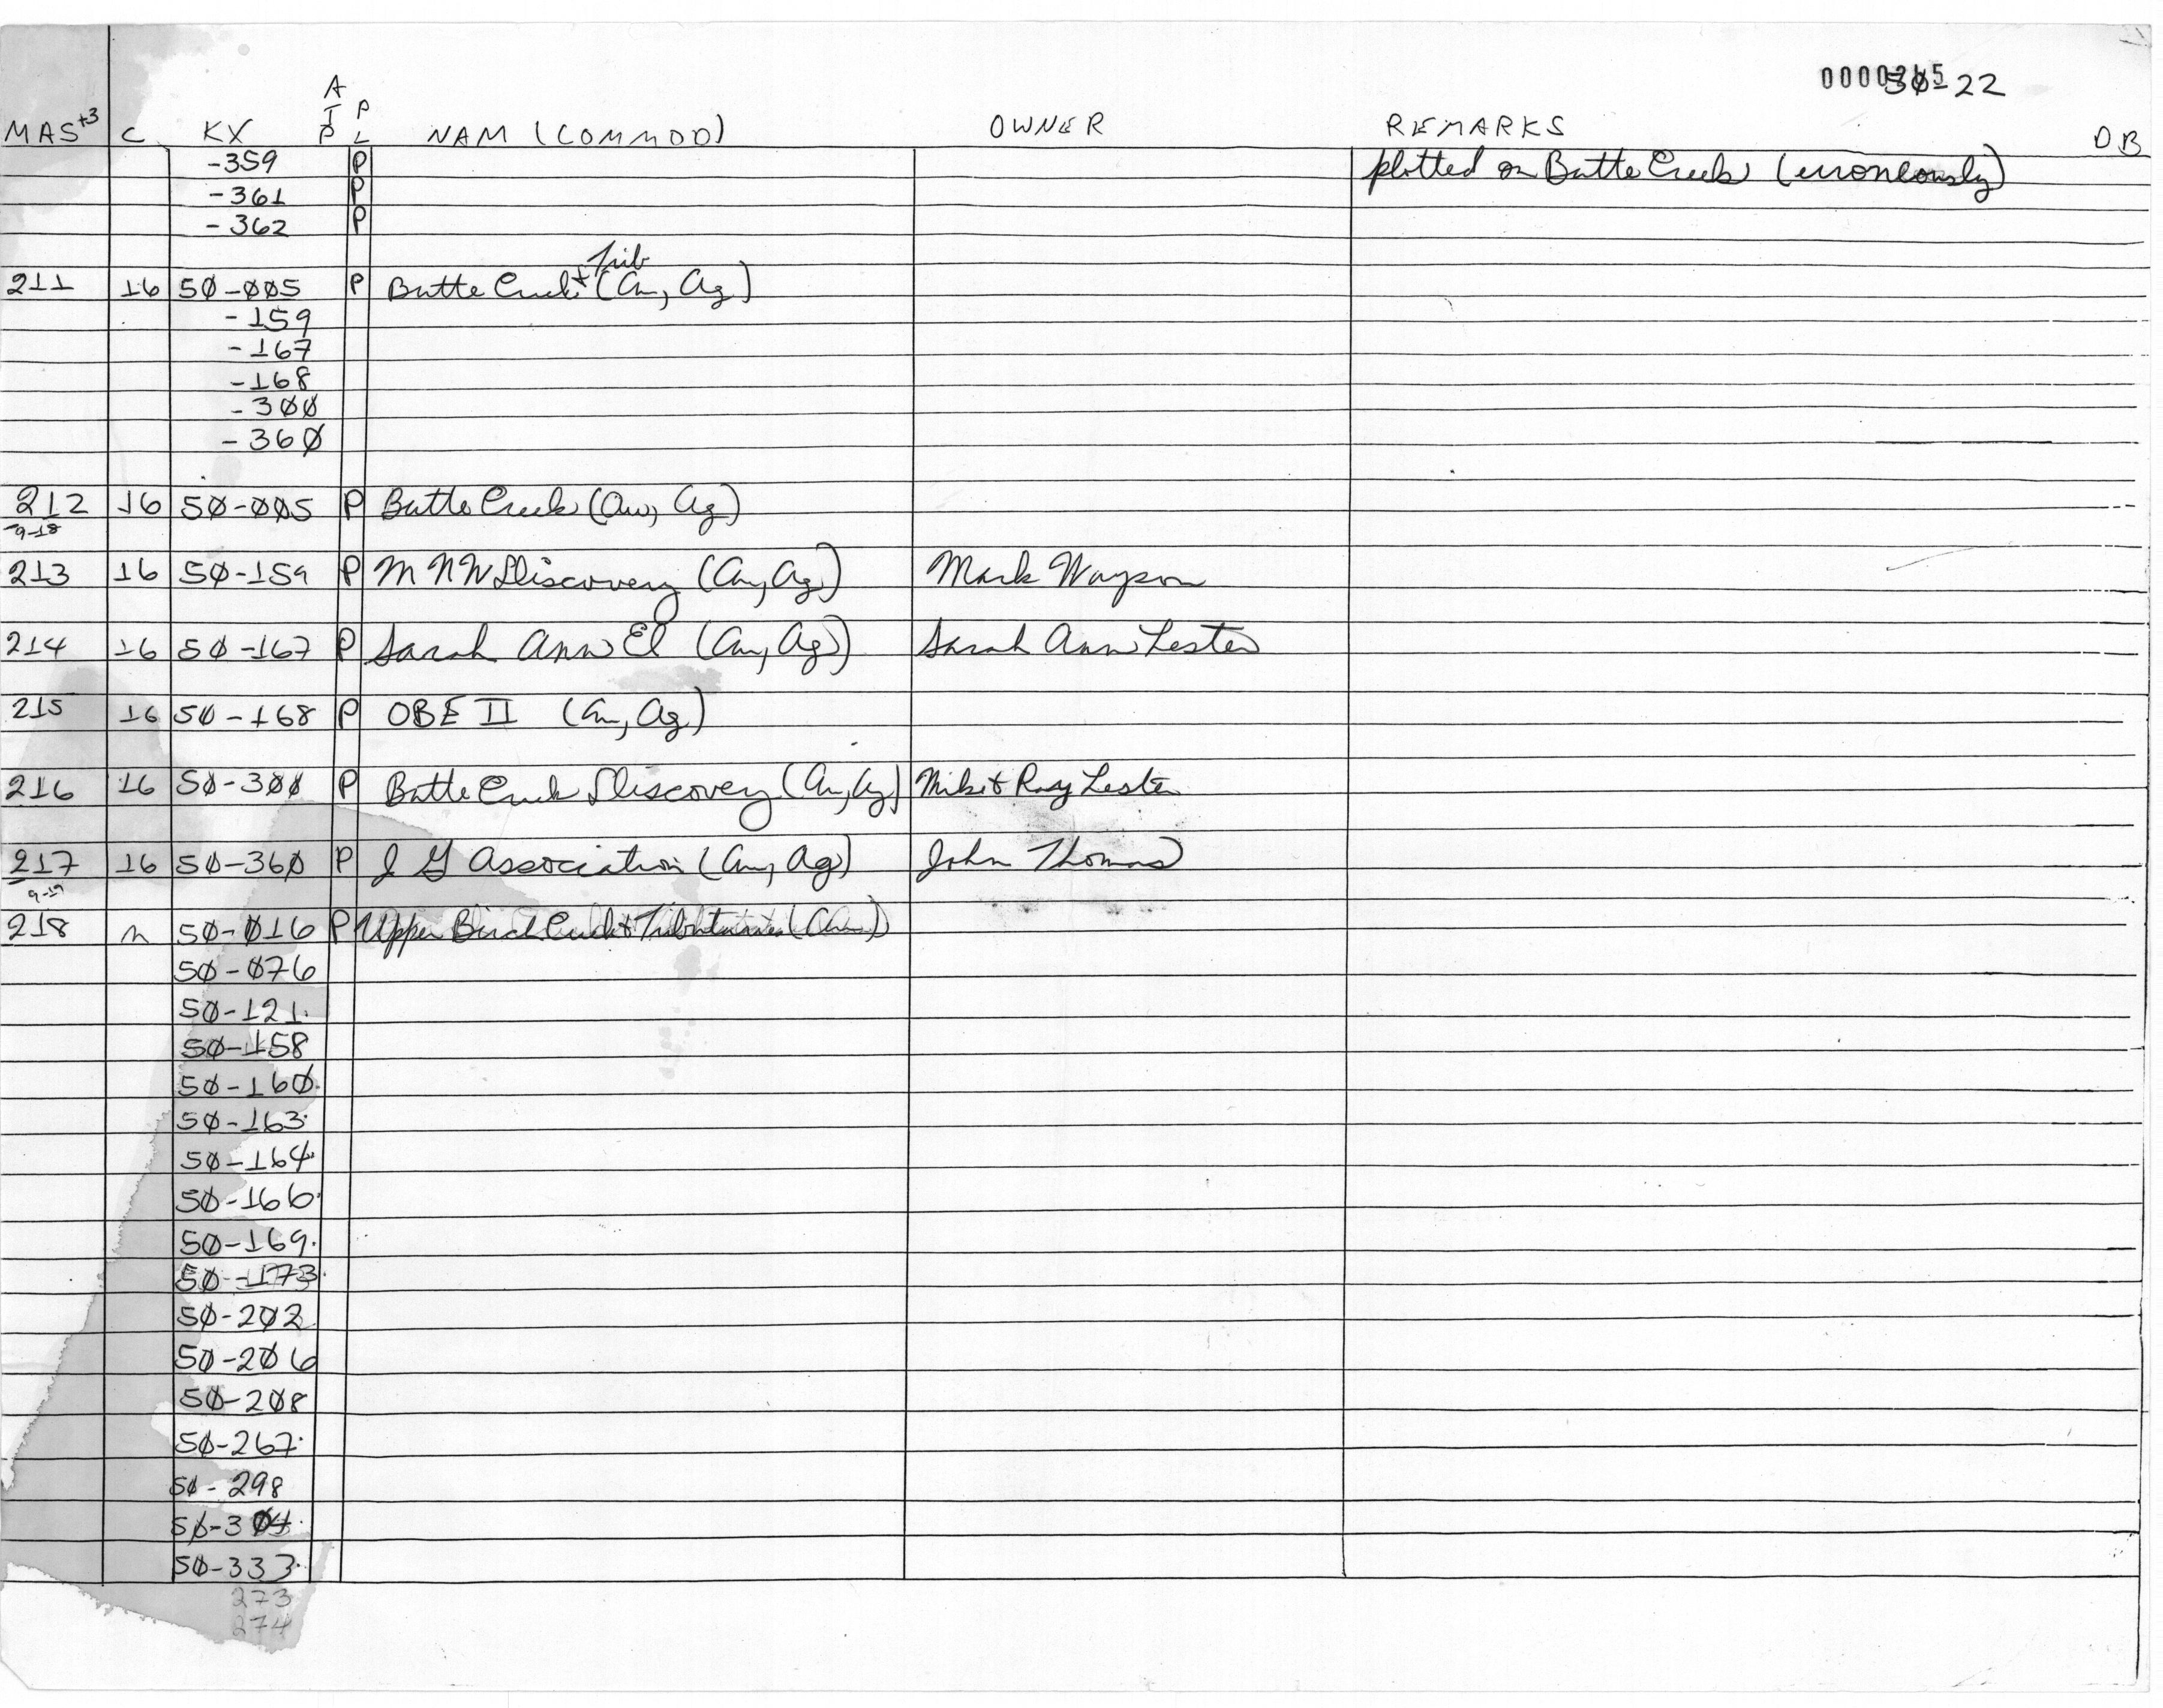 50-22
MAS+3 C KX ATP PL NAM (COMMOD) OWNER REMARKS DB
-359 P plotted on Butte Creek (erroneously)
-361 P
-362 P
Trib
211 16 50-005 P Butte Creek + (Au, Ag)
-159
-167
-168
-300
-360
212 16 50-005 P Butte Creek (Au, Ag)
9-18
213 16 50-159 P M N W Discovery (Au, Ag) Mark Wayson
214 16 50-167 P Sarah Ann El (Au, Ag) Sarah Ann Lester
215 16 50-168 P OBE II (Au, Ag)
216 16 50-300 P Butte Creek Discovery (Au, Ag) Mike + Ray Lester
217 16 50-360 P J G Association (Au, Ag) John Thomas
218 n 50-016 P Upper Birch Creek + Tributaries (Au)
50-076
50-121
50-158
50-160
50-163
50-164
50-166
50-169
50-173
50-202
50-206
50-208
50-267
50-298
50-304
50-333
273
274